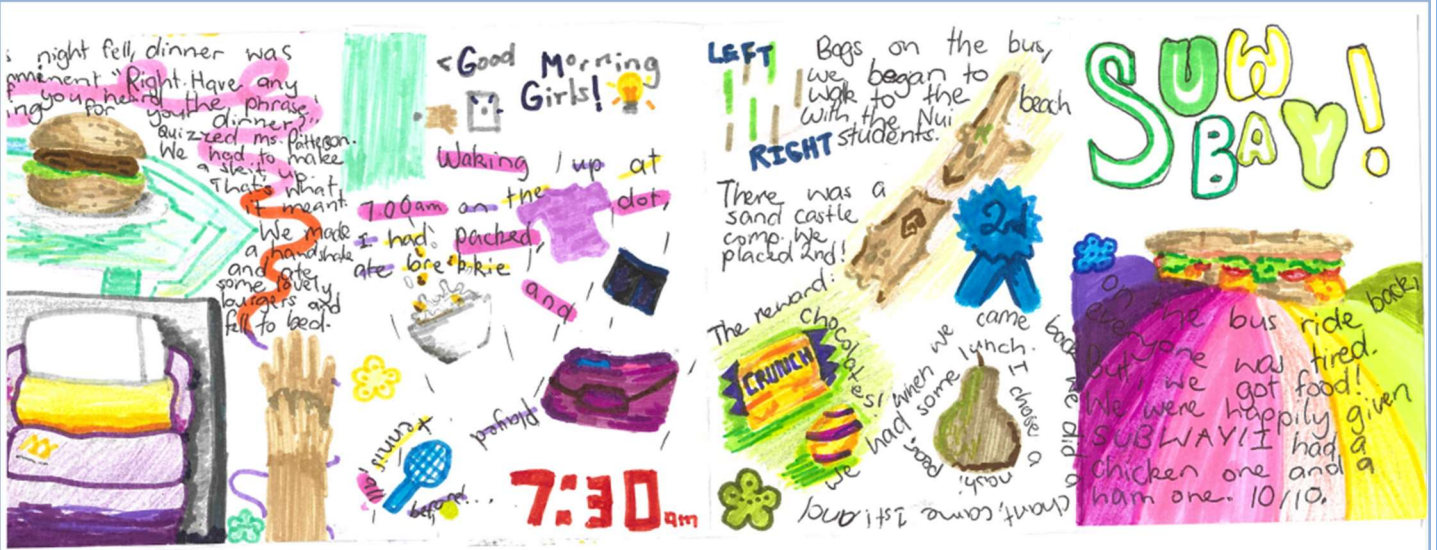 night fell, dinner was
"Right. Have any
you heard the phrase,
ing for your dinner?"
Quizzed ms. Patterson.
We had to make
a skit up.
That's what
it meant.
We made
a handshake
and ate
some lovely
burgers and
fell to bed.
<Good Morning
Girls!
Waking up at
7.00am on the dot,
I had packed
ate brekkie
and
played
tennis
till
before!...
7:30am
LEFT
RIGHT
Bags on the bus,
we began to
walk to the beach
with the Nui
students.
There was a
sand castle
comp. We
placed 2nd!
2nd
The reward:
chocolates!
CRUNCH
when we came back
we had some lunch. I chose a
nashi
pear.
we did a
chant, came 1st! and
SUN
BAY!
on the bus ride back,
everyone was tired.
But, we got food!
We were happily given
SUBWAY! I had a
chicken one and a
ham one. 10/10.